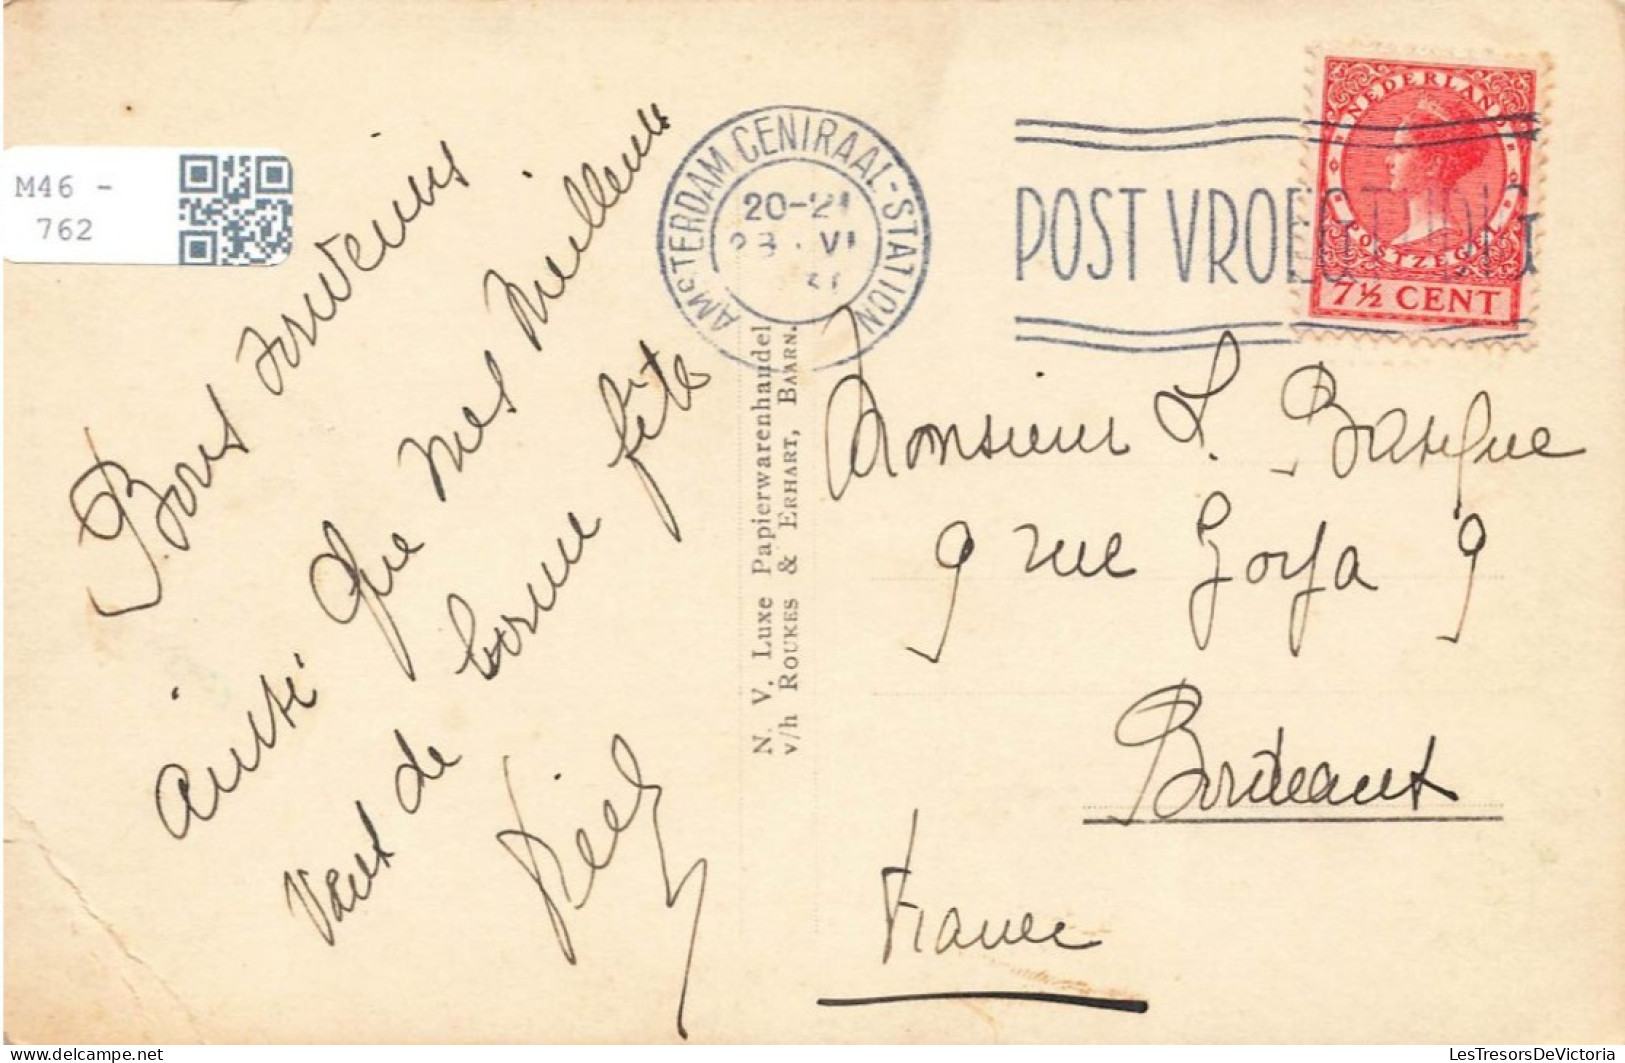 M46 -
762
AMSTERDAM CENTRAAL-STATION
20-21
VI
POST VROEGTIJDIG
NEDERLAND
POSTZEGEL
7½ CENT
Bons souvenirs
ainsi que mes meilleurs
vœux de bonne fête
N. V. Luxe Papierwarenhandel
v/h Roukes & Erhart, Baarn.
Monsieur L. Basque
9 rue Goya 9
Bordeaux
France
delcampe.net
LesTresorsDeVictoria